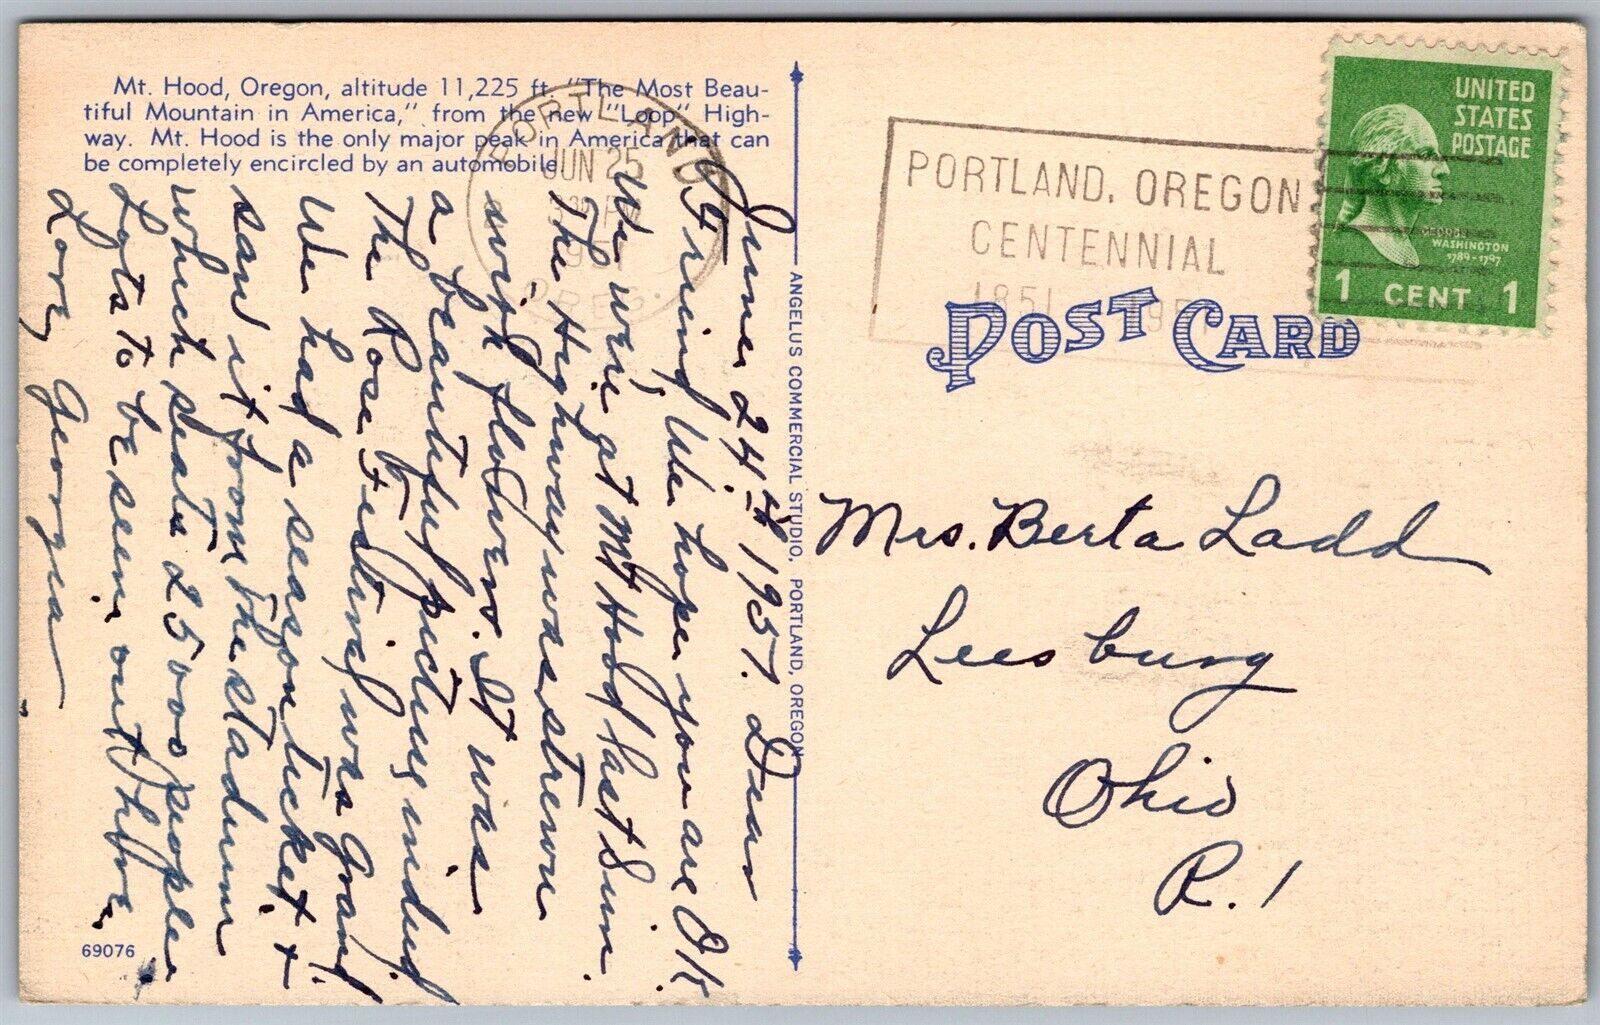 Mt. Hood, Oregon, altitude 11,225 ft. "The Most Beau-
tiful Mountain in America," from the new "Loop" High-
way. Mt. Hood is the only major peak in America that can
be completely encircled by an automobile.
PORTLAND
JUN 25
1951
OREG.
June 24th 1951. Dear
Friend, We hope you are OK.
We were at Mt Hood last Sun.
The Highway was strewn
with flowers. It was
a beautiful picture indeed.
The Rose Festival was Grand.
We had a season ticket &
saw it from the stadium
which seats 25000 people
Lots to be seen out here.
Love Georgia
69076
ANGELUS COMMERCIAL STUDIO, PORTLAND, OREGON
PORTLAND, OREGON
CENTENNIAL
1851 1951
UNITED
STATES
POSTAGE
GEORGE
WASHINGTON
1789-1797
1 CENT 1
POST CARD
Mrs. Berta Ladd
Leesburg
Ohio
R. 1